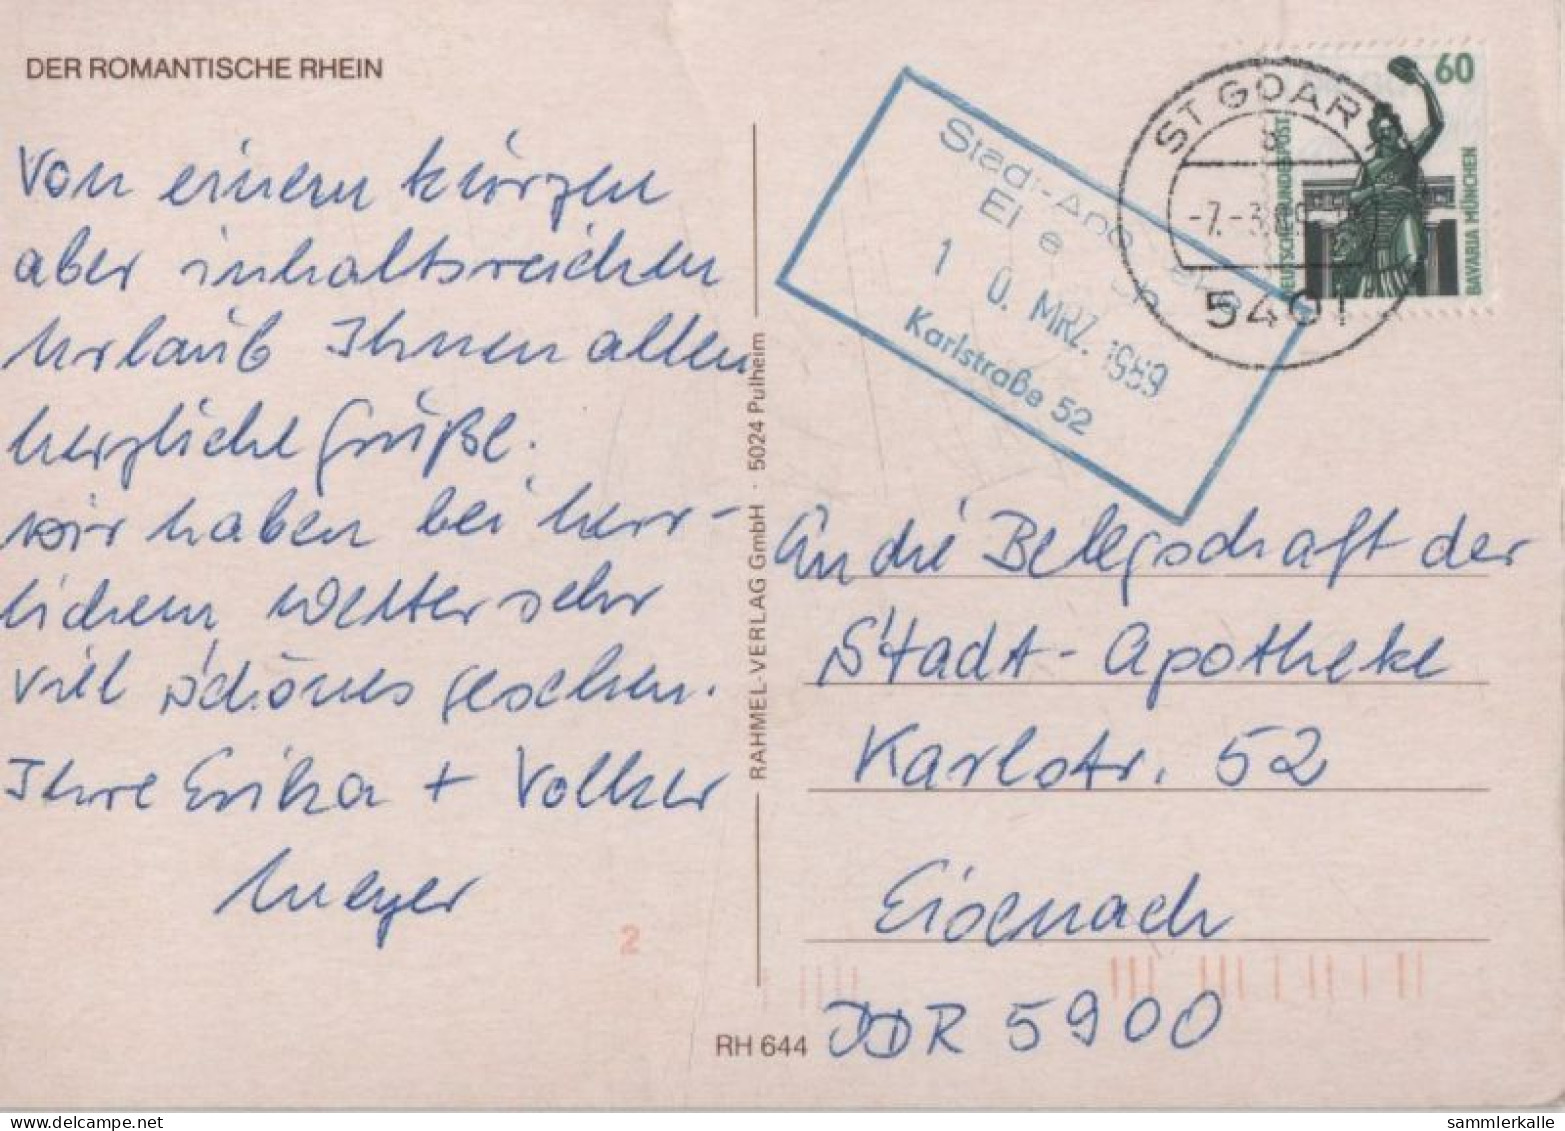 DER ROMANTISCHE RHEIN
Von einem kurzen
aber inhaltsreichen
Urlaub Ihnen allen
herzliche Grüße.
wir haben bei herr-
lichem Wetter sehr
viel schönes gesehen.
Ihre Erika + Volker
Meyer
2
RAHMEL-VERLAG GmbH · 5024 Pulheim
RH 644
Karlstraße 52
1 0. MRZ. 1989
ST GOAR
5401
60
DEUTSCHE BUNDESPOST
BAVARIA MÜNCHEN
An die Belegschaft der
Stadt-Apotheke
Karlstr. 52
Eisenach
DDR 5900
sammlerkalle